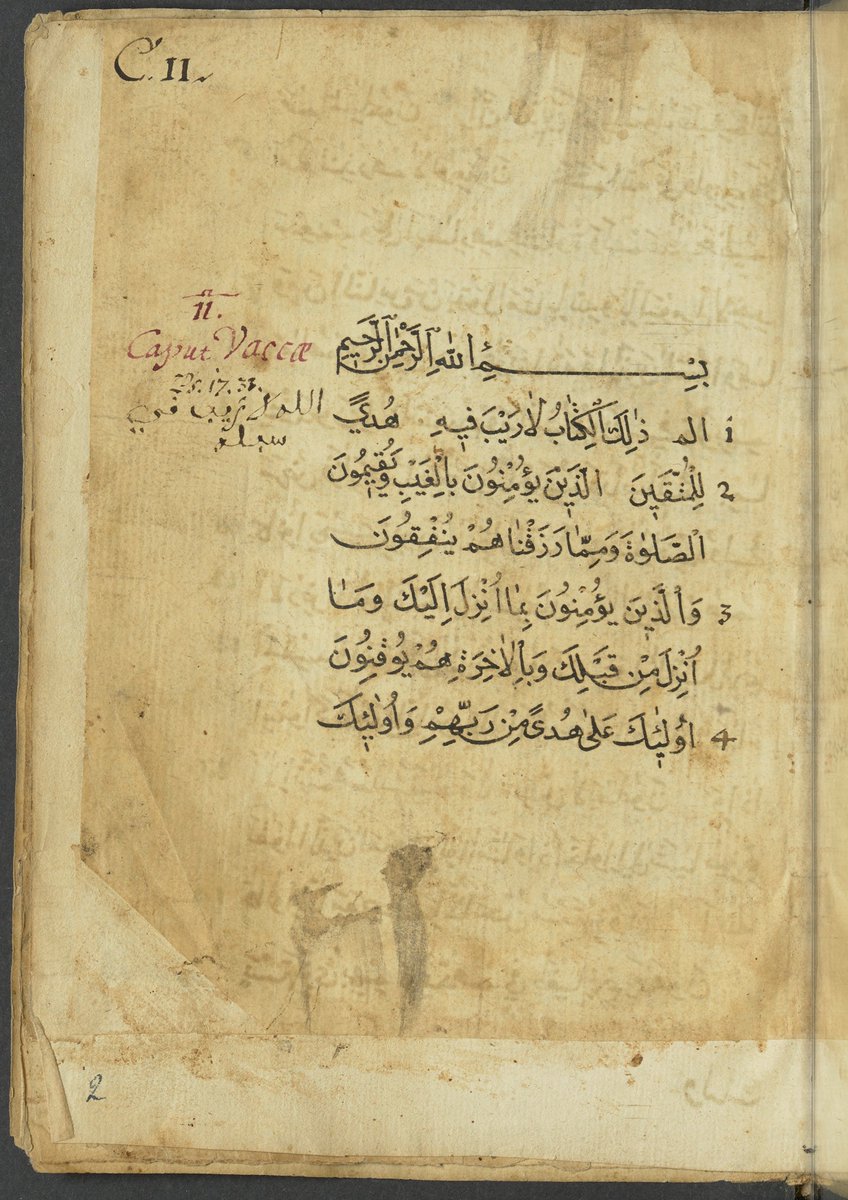 C. II.
II.
Caput Vaccæ
Ps. 17. 31.
الله لا ريب في
سبله
بِسْــــــمِ اللهِ ٱلرَّحْمٰنِ ٱلرَّحِيمِ
1 الم ذٰلِكَ ٱلْكِتٰابُ لٰا رَيْبَ فِيهِ هُدىً
2 لِلْمُتَّقِينَ الَّذِينَ يُؤْمِنُونَ بِالْغَيْبِ وَيُقِيمُونَ
الصَّلٰوةَ وَمِمّٰا رَزَقْنٰاهُمْ يُنْفِقُونَ
3 وَٱلَّذِينَ يُؤْمِنُونَ بِمٰا اُنْزِلَ اِلَيْكَ وَمٰا
اُنْزِلَ مِنْ قَبْلِكَ وَبِالْاٰخِرَةِ هُمْ يُوقِنُونَ
4 أُولٰئِكَ عَلىٰ هُدىً مِنْ رَبِّهِمْ وَاُولٰئِكَ
2